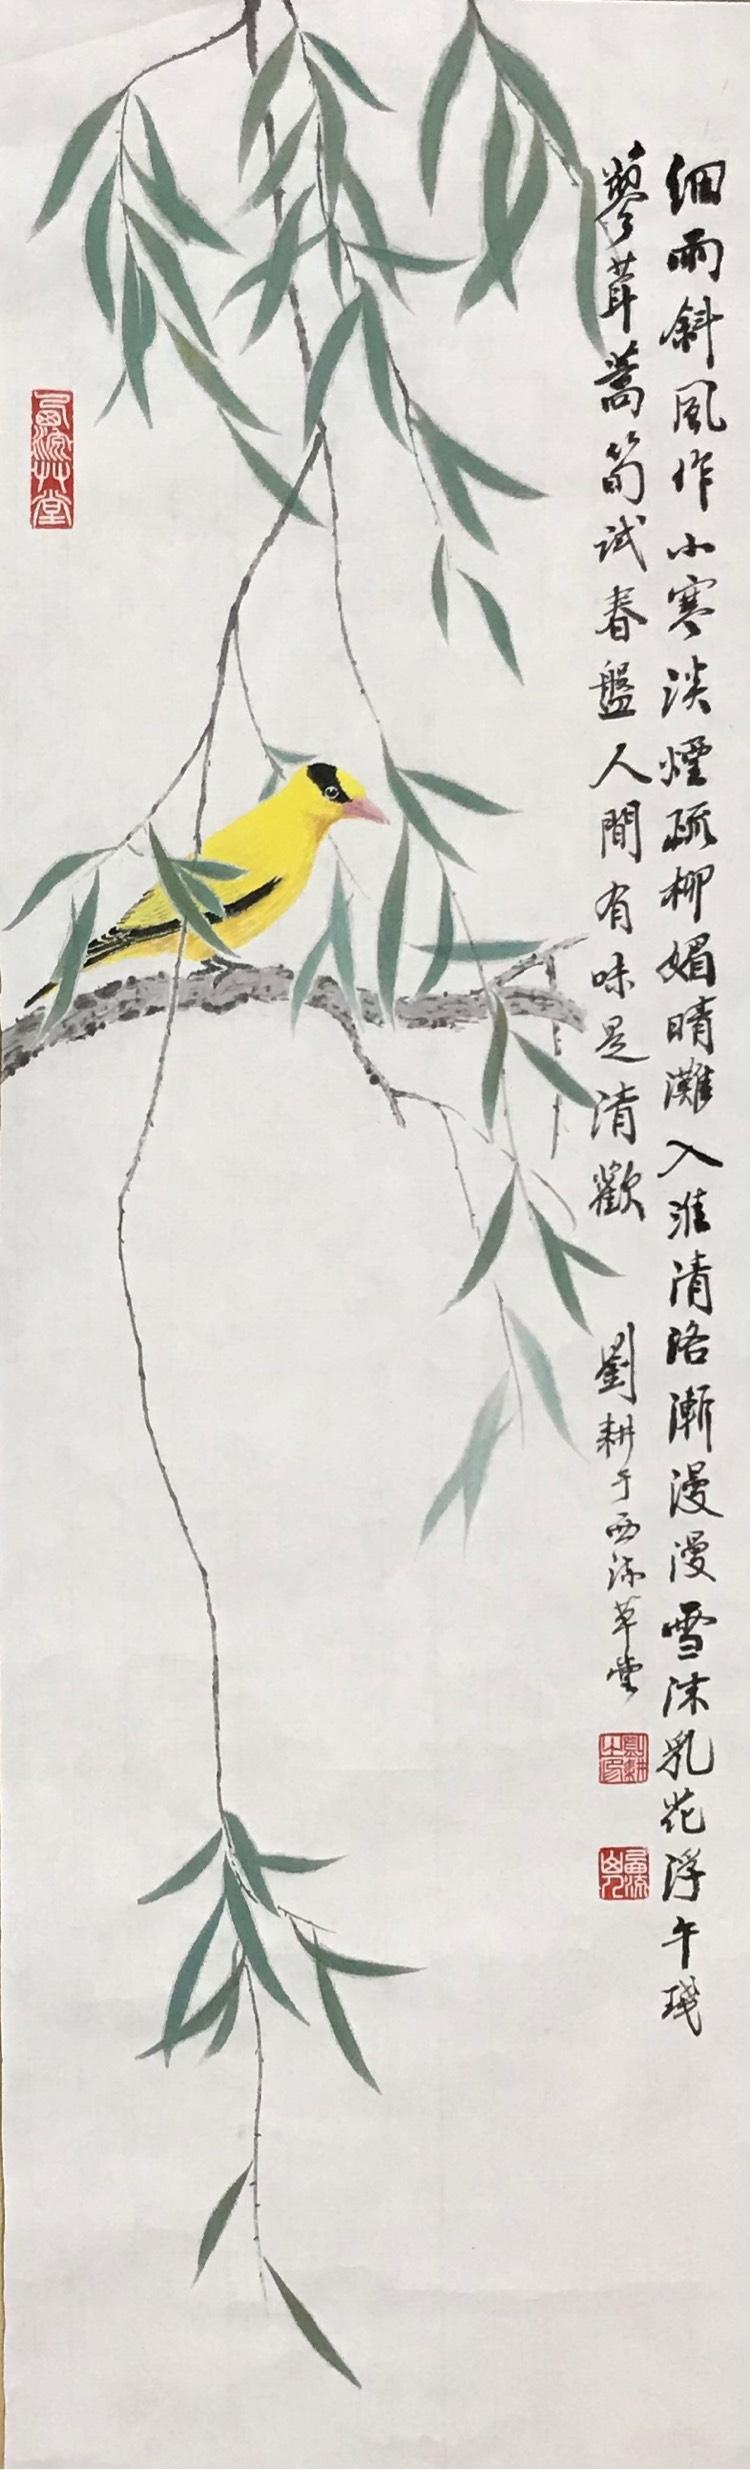 細雨斜風作小寒淡煙疏柳媚晴灘入淮清洛漸漫漫雪沫乳花浮午琖
蓼茸蒿筍試春盤人間有味是清歡
劉耕于西草堂